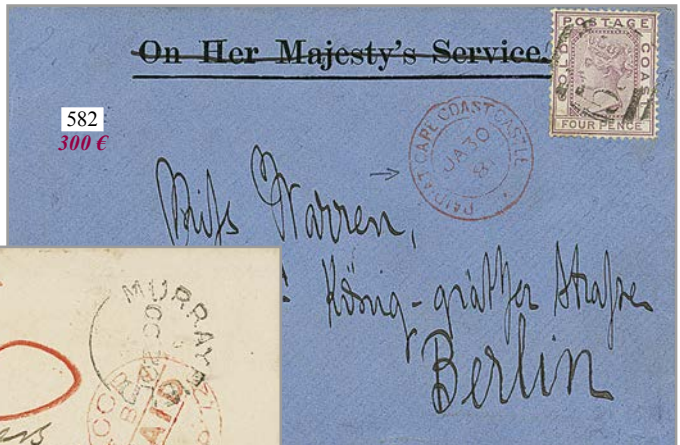 On Her Majesty's Service.
POSTAGE
GOLD COAST
FOUR PENCE
582
300 €
PAID AT CAPE COAST CASTLE
JA 30
81
Miss Warren,
König-grätzer Straße
Berlin
MURRAY
PAID